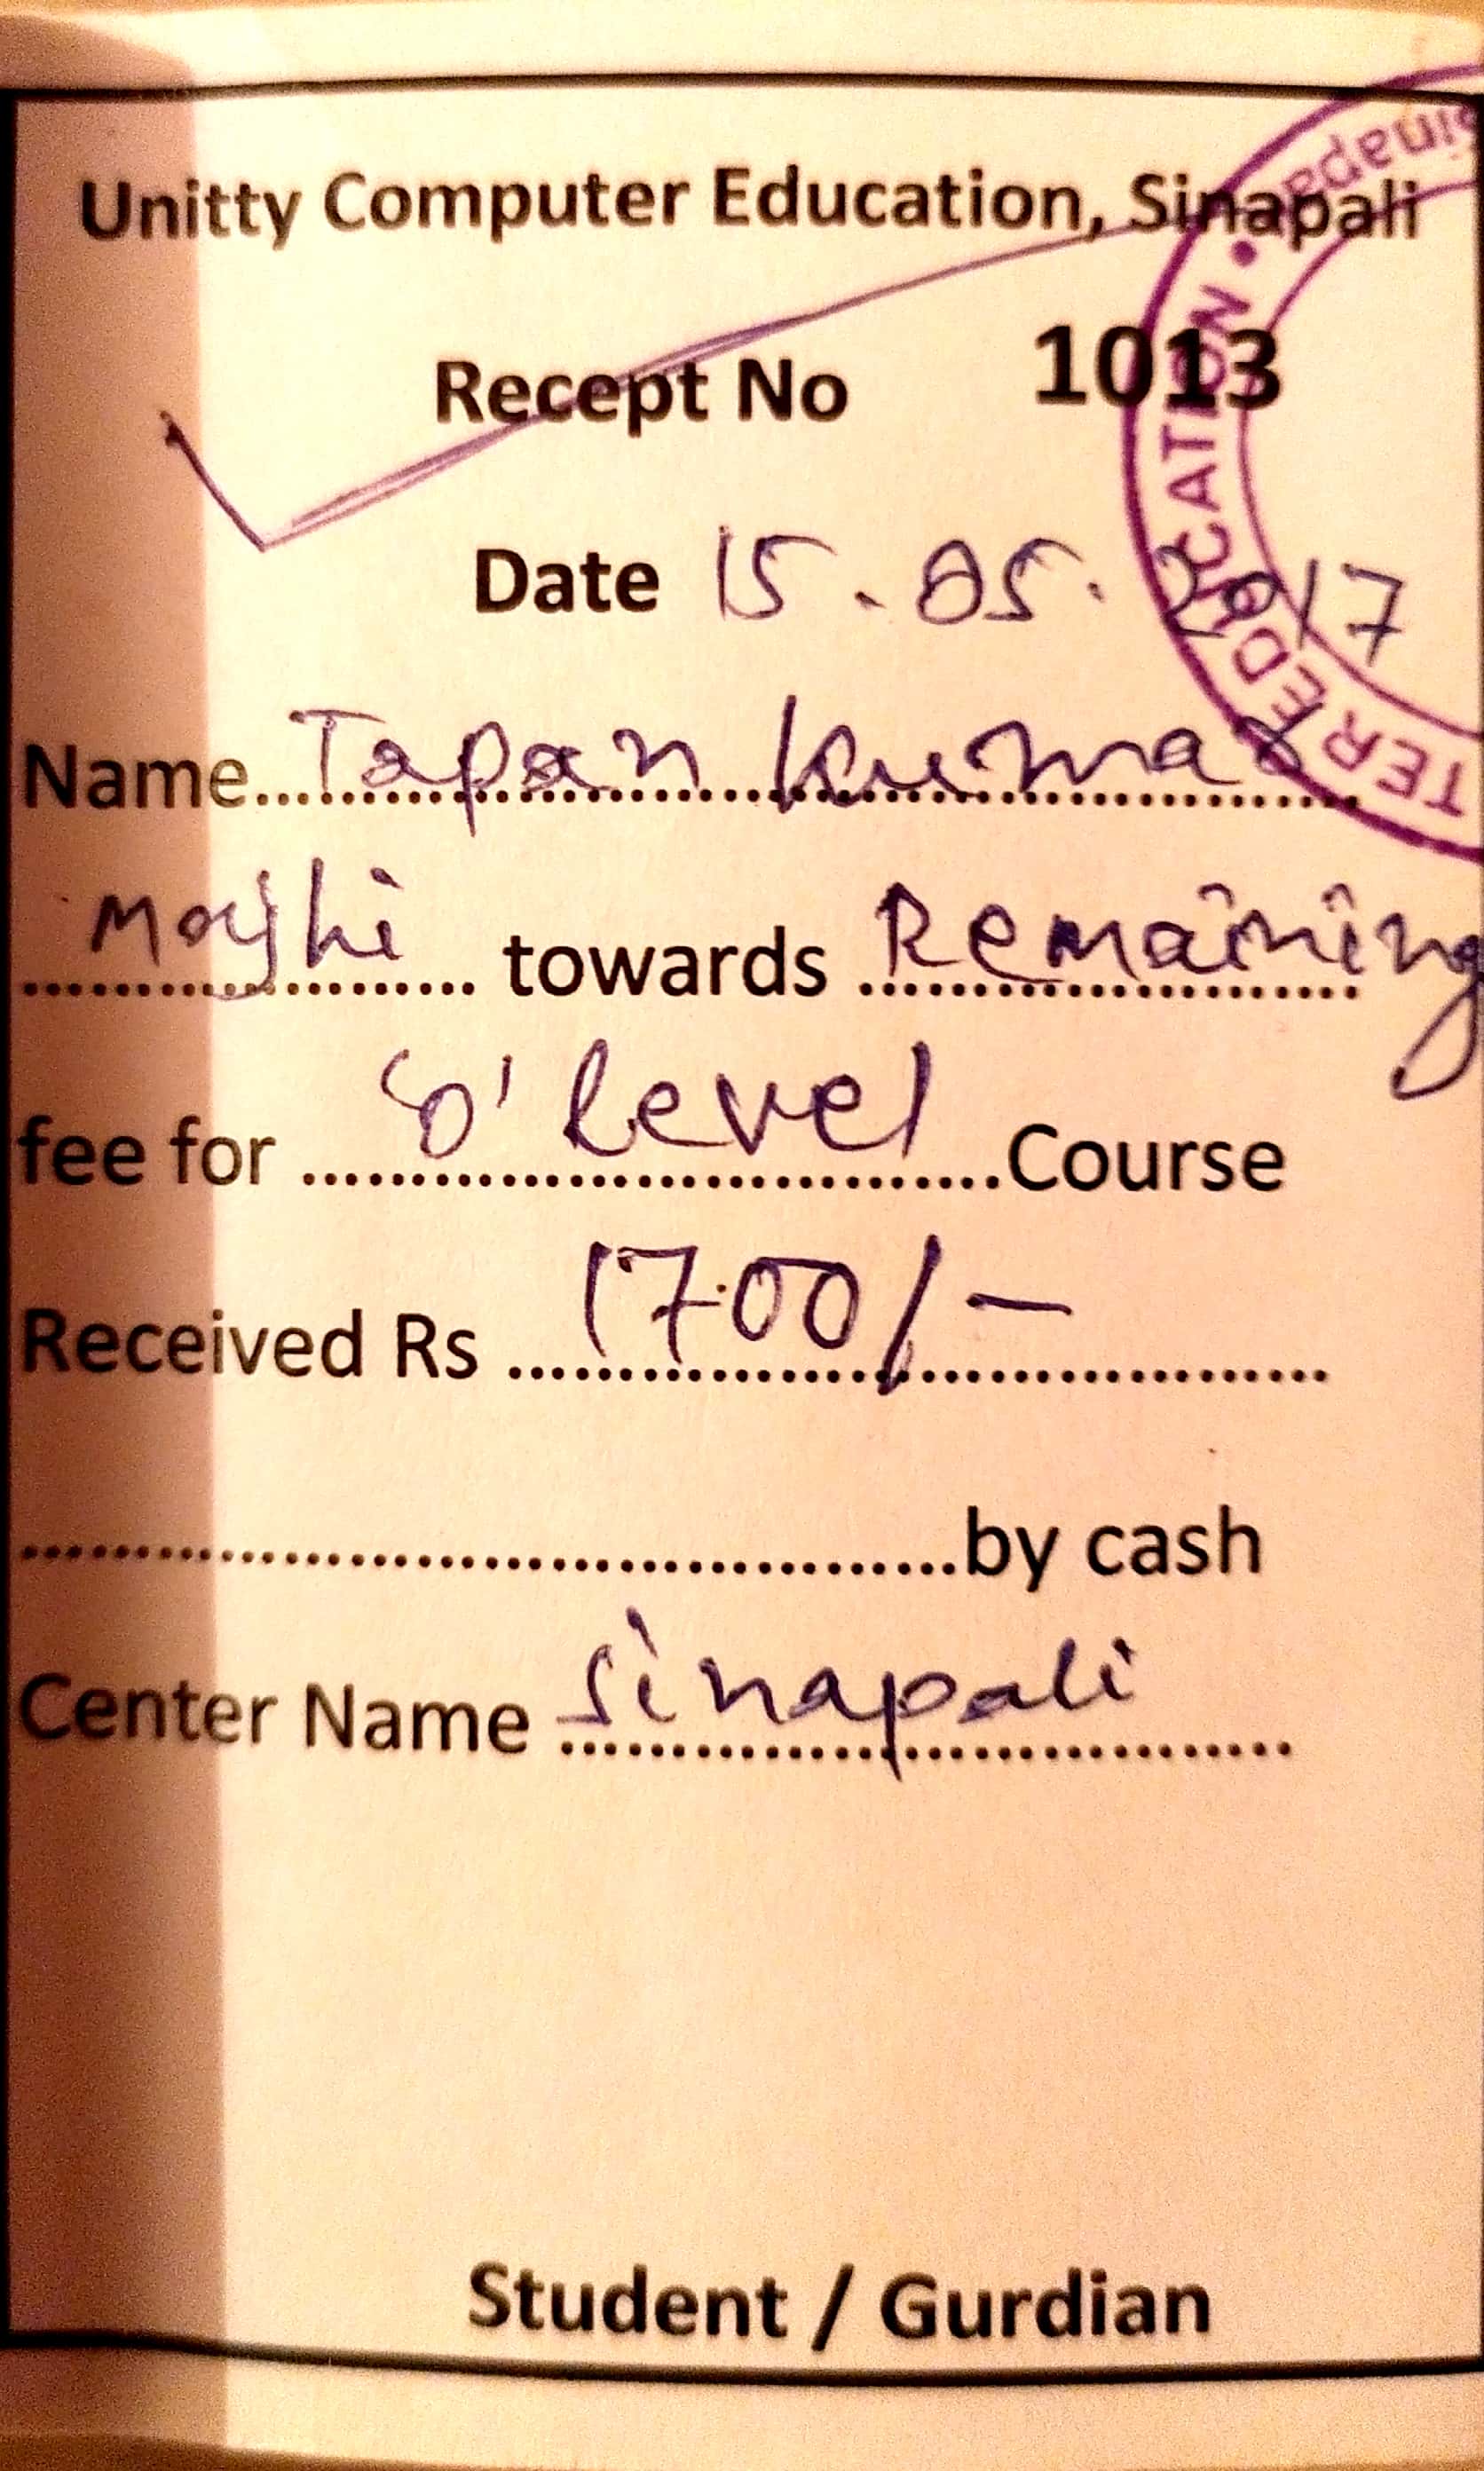 Unitty Computer Education, Sinapali
Recept No 1013
Date 15.05.2017
Name Tapan Kumar
Majhi towards Remaining
fee for 'O' Level Course
Received Rs 1700/-
by cash
Center Name Sinapali
Student / Gurdian
TER EDUCATION • Sinapa